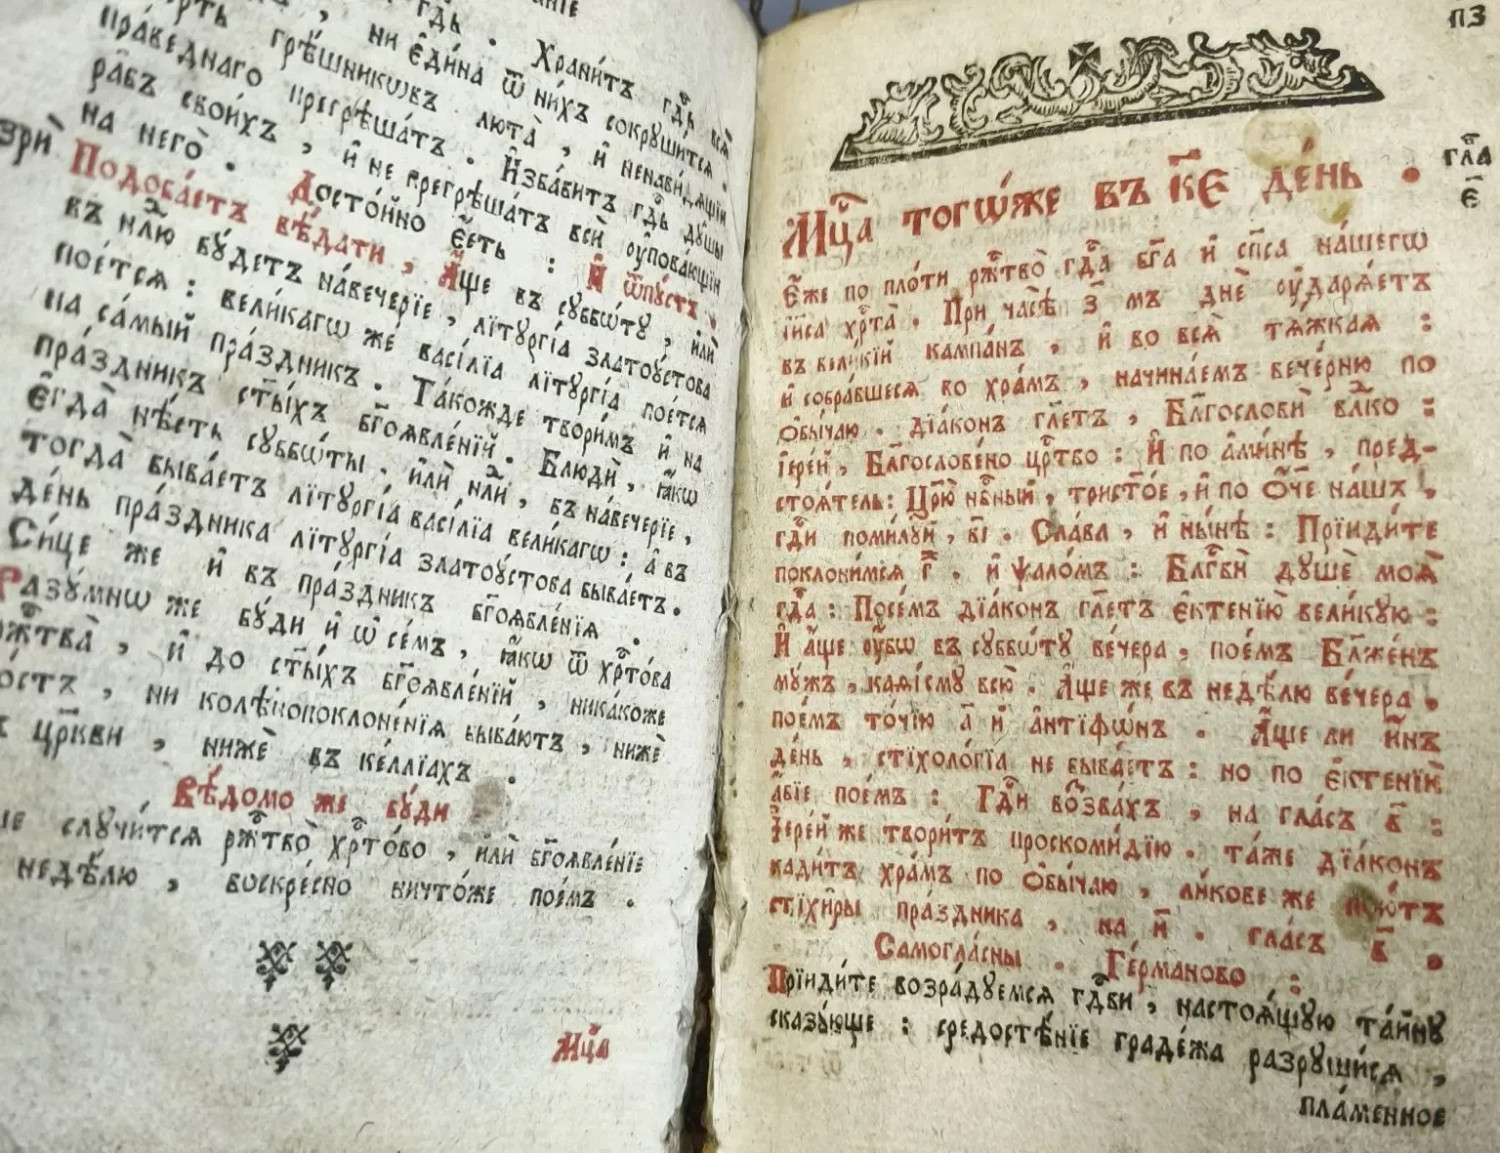 гдⷭ҇ь . Храни́тъ гдⷭ҇ь всѧ̑
ни є҆ди́на ѿ ни́хъ сокруши́тсѧ .
грѣ́шникѡвъ люта̀ , и҆ ненави́дѧщїи
пра́веднаго прегрѣша́тъ . И҆зба́витъ гдⷭ҇ь дꙋ́шы
ра̑бъ свои́хъ , и҆ не прегрѣша́тъ всѝ ᲂу҆пова́ющїи
на него̀ . Досто́йно є҆́сть : И҆ ѿпꙋ́стъ .
зрѝ
Подоба́етъ вѣ́дати , А҆́ще въ сꙋббѡ́тꙋ , и҆лѝ
въ нлⷣю бꙋ́детъ наве́черїе , лїтꙋргі́а златоꙋ́стова
пое́тсѧ : вели́кагѡ же васі́лїа лїтꙋргі́а пое́тсѧ
на са́мый пра́здникъ . Та́кожде твори́мъ и҆ на
пра́здникъ ст҃ы́хъ бг҃оѧвле́нїй . Блюдѝ , ꙗ҆́кѡ
є҆гда̀ нѣ́сть сꙋббѡ́ты , и҆лѝ нлⷣи , въ наве́черїе ,
тогда̀ быва́етъ лїтꙋргі́а васі́лїа вели́кагѡ : а҆ въ
де́нь пра́здника лїтꙋргі́а златоꙋ́стова быва́етъ .
Си́це же и҆ въ пра́здникъ бг҃оѧвле́нїѧ .
Разꙋ́мнѡ же бꙋ́ди и҆ ѡ҆ се́мъ , ꙗ҆́кѡ ѿ хрⷭ҇то́ва
ржⷭ҇тва̀ , и҆ до ст҃ы́хъ бг҃оѧвле́нїй , ника́коже
по́стъ , ни колѣнопоклоне́нїѧ быва́ютъ , нижѐ
въ цр҃кви , нижѐ въ ке́ллїахъ .
Вѣ́домо же бꙋ́ди
случи́тсѧ ржⷭ҇тво̀ хрⷭ҇то́во , и҆лѝ бг҃оѧвле́нїе
недѣ́лю , воскре́сно ничто́же пое́мъ .
Мцⷭ҇а
пз
Мцⷭ҇а тогѡ́же въ к҃е де́нь .
гла
є҃
Є҆́же по пло́ти ржⷭ҇тво̀ гдⷭ҇а бг҃а и҆ сп҃са на́шегѡ
і҆и҃са хрⷭ҇та̀ . При часѣ̀ з҃ мъ днѐ ᲂу҆дарѧ́етъ
въ вели́кїй кампа́нъ , и҆ во всѧ̑ тѧ̑жкаѧ :
и҆ собра́вшесѧ во хра́мъ , начина́емъ вече́рню по
ѻ҆бы́чаю . дїа́конъ гл҃етъ , Бл҃гословѝ влⷣко :
І҆ере́й , Бл҃гослове́но црⷭ҇тво : И҆ по а҆ми́нѣ , пред-
стоѧ́тель: Цр҃ю̀ нбⷭ҇ный , трист҃о́е , и҆ по Ѻ҆́ч҃е на́шъ ,
гдⷭ҇и поми́лꙋй , в҃і . Сла́ва , и҆ ны́нѣ : Прїиди́те
поклони́мсѧ г҃ . и҆ ѱало́мъ : Блгⷭ҇вѝ дꙋшѐ моѧ̀
гдⷭ҇а : Посе́мъ дїа́конъ гл҃етъ є҆ктенїю̀ вели́кꙋю :
И҆ а҆́ще ᲂу҆́бѡ въ сꙋббѡ́тꙋ ве́чера , пое́мъ Бл҃же́нъ
мꙋ́жъ , каѳі́смꙋ всю̀ . А҆́ще же въ недѣ́лю ве́чера ,
пое́мъ то́чїю а҃ и҆ а҆нтїфѡ́нъ . А҆́ще ли и҆́нъ
де́нь , стїхоло́гїа не быва́етъ : но по є҆ктенїѝ
а҆́бїе пое́мъ : Гдⷭ҇и воззва́хъ , на гла́съ в҃ :
І҆ере́й же твори́тъ проскоми́дїю . та́же дїа́конъ
кади́тъ хра́мъ по ѻ҆бы́чаю , ли́кове же пою́тъ
стїхи̑ры пра́здника , на и҃ . гла́съ в҃ .
Самогла́сны . Ге́рманово :
Прїиди́те возра́дꙋемсѧ гдⷭ҇ви , настоѧ́щꙋю та́йнꙋ
сказꙋ́юще : средостѣ́нїе граде́жа разрꙋши́сѧ ,
пла́менное